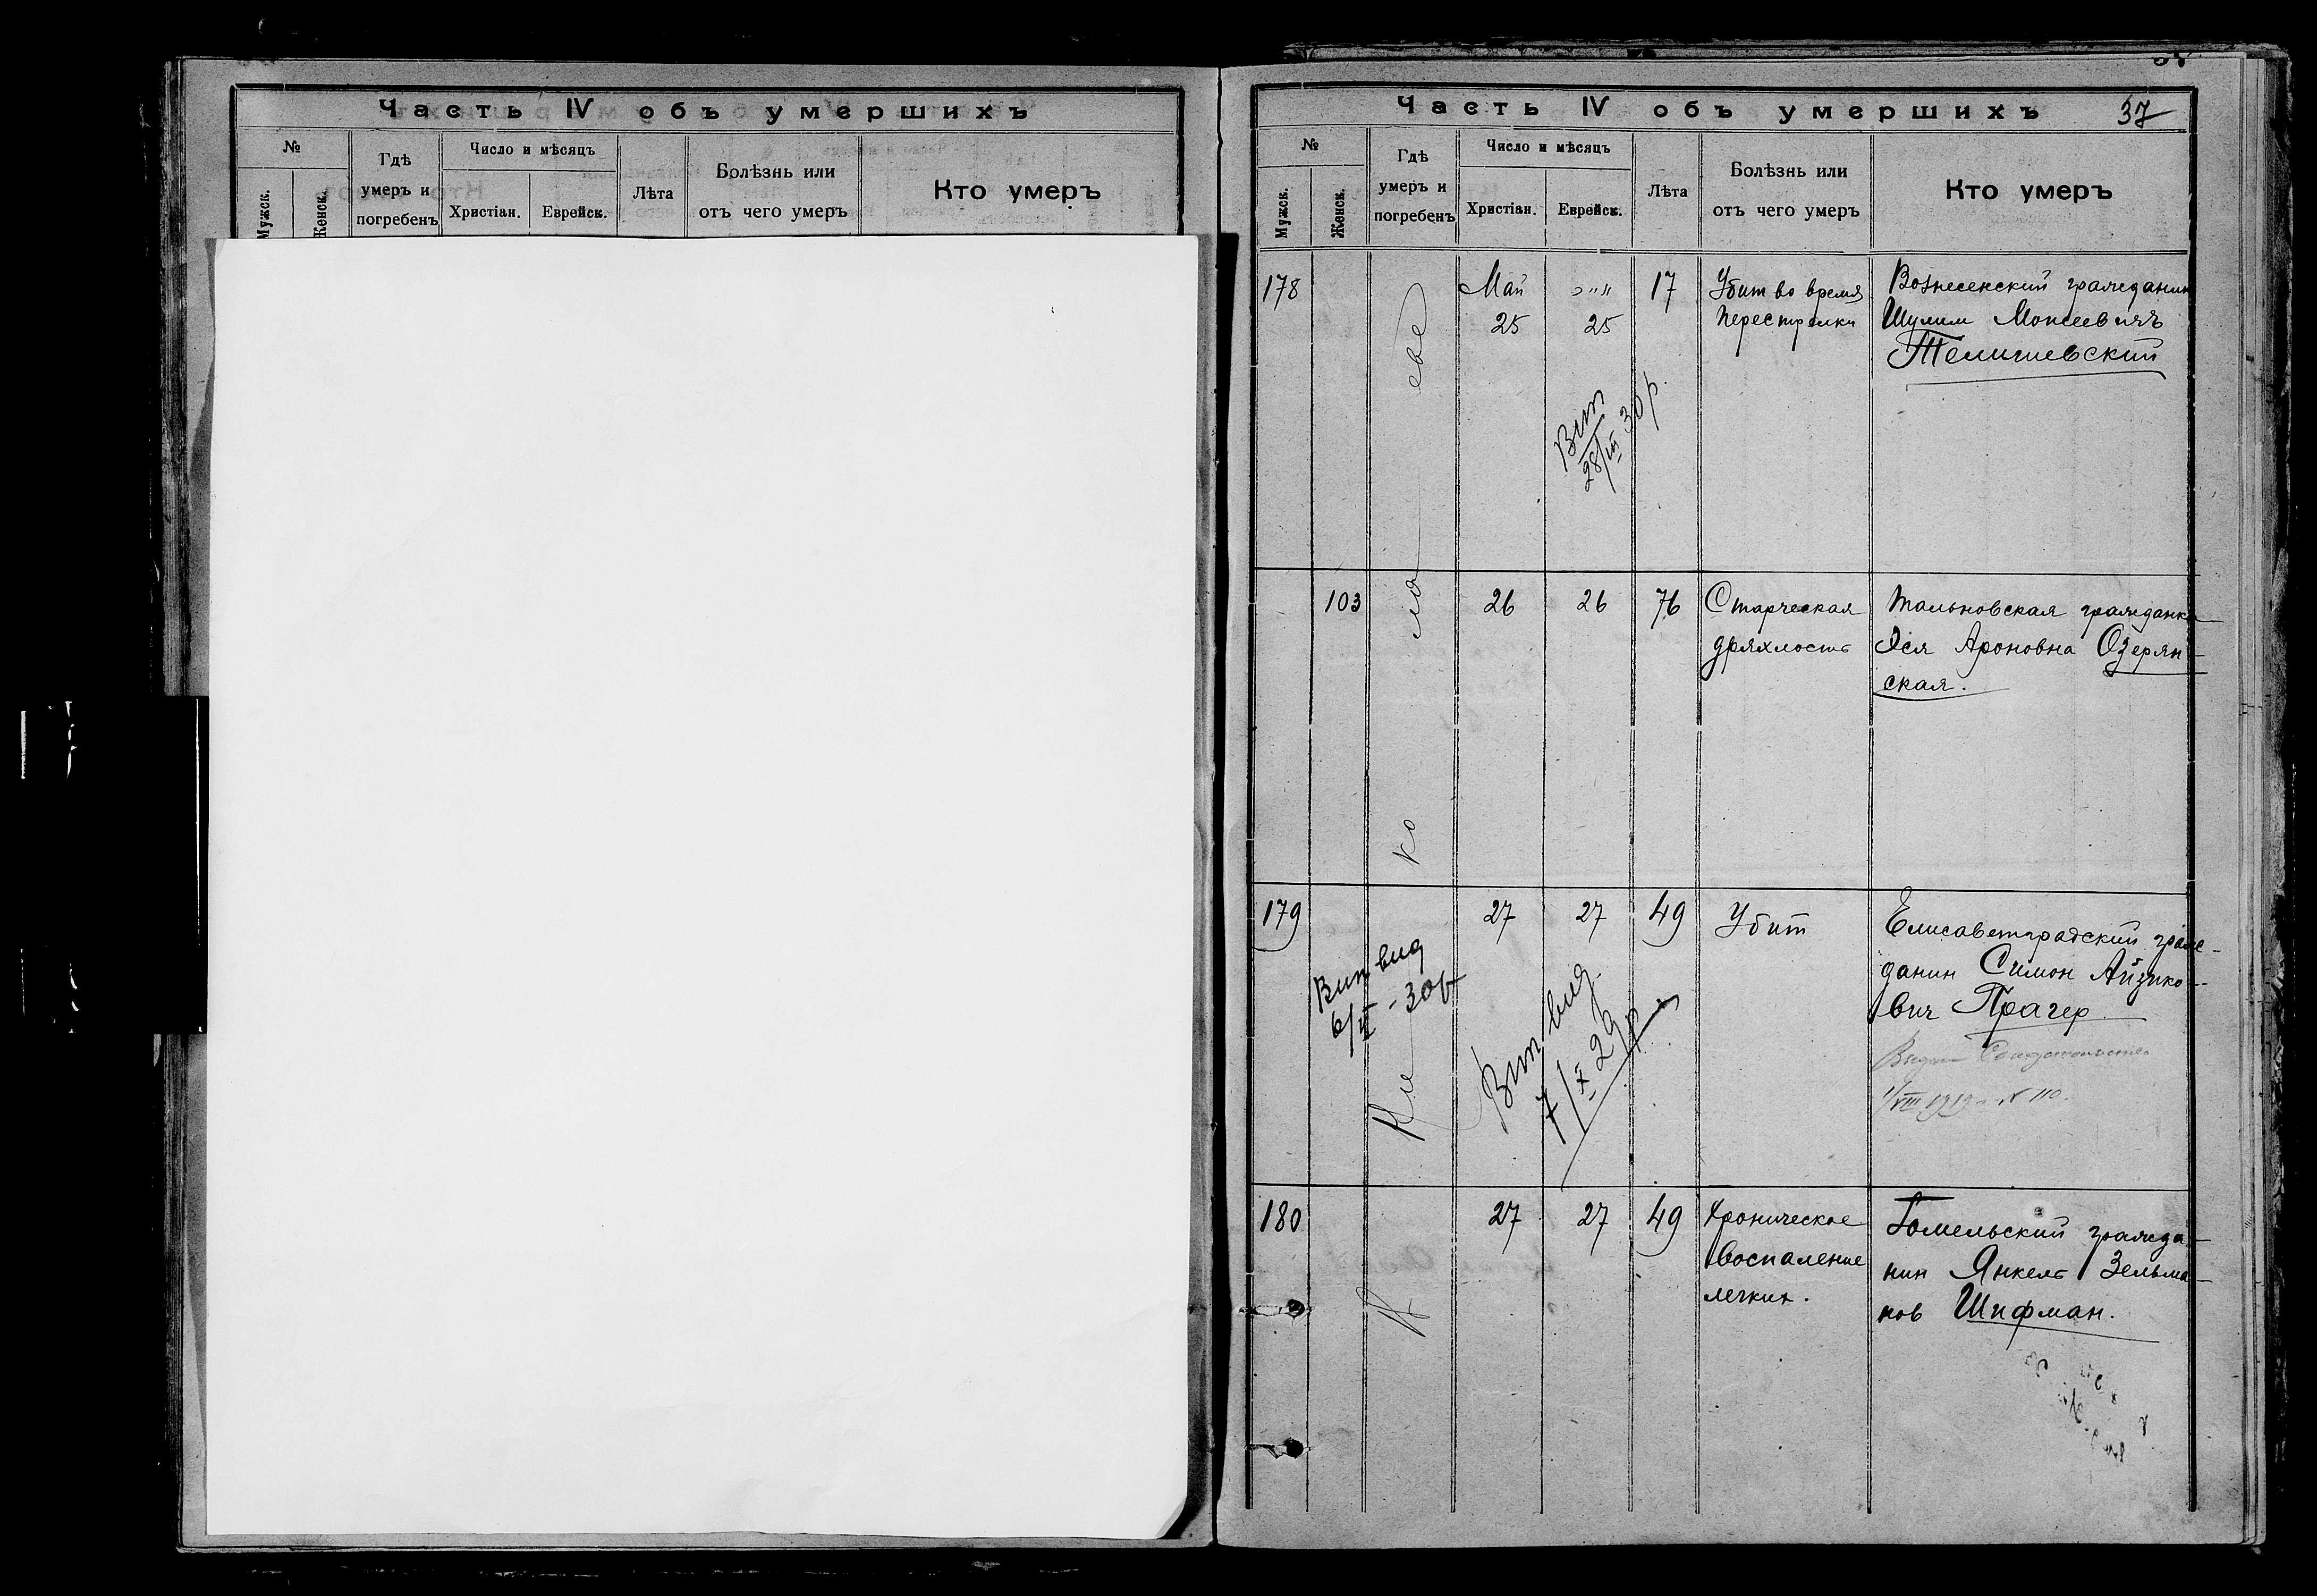 Часть IV объ умершихъ
№
Мужск.
Женск.
Гдѣ
умеръ и
погребенъ
Число и мѣсяцъ
Христіан.
Еврейск.
Лѣта
Болѣзнь или
отъ чего умеръ
Кто умеръ
Часть IV объ умершихъ
37
№
Мужск.
Женск.
Гдѣ
умеръ и
погребенъ
Число и мѣсяцъ
Христіан.
Еврейск.
Лѣта
Болѣзнь или
отъ чего умеръ
Кто умеръ
178
Май
25
25
17
Убит во время
перестрелки
Вознесенский гражданин
Шулим Моисеевичъ
28/III 30 р.
103
26
26
76
Старческая
дряхлость
Тальновская гражданка
Ароновна Озерян-
ская.
Николаеве
179
27
27
49
Убит
Елисаветградский граж-
данин Симон Айзико-
вич Прагер.
Выдан Свидетельство
1/VIII 1919 N 110.
7/X 29 р
180
27
27
49
Хроническое
воспаление
легких.
Гомельский гражда-
нин Янкель Зельма-
нов Шифман.